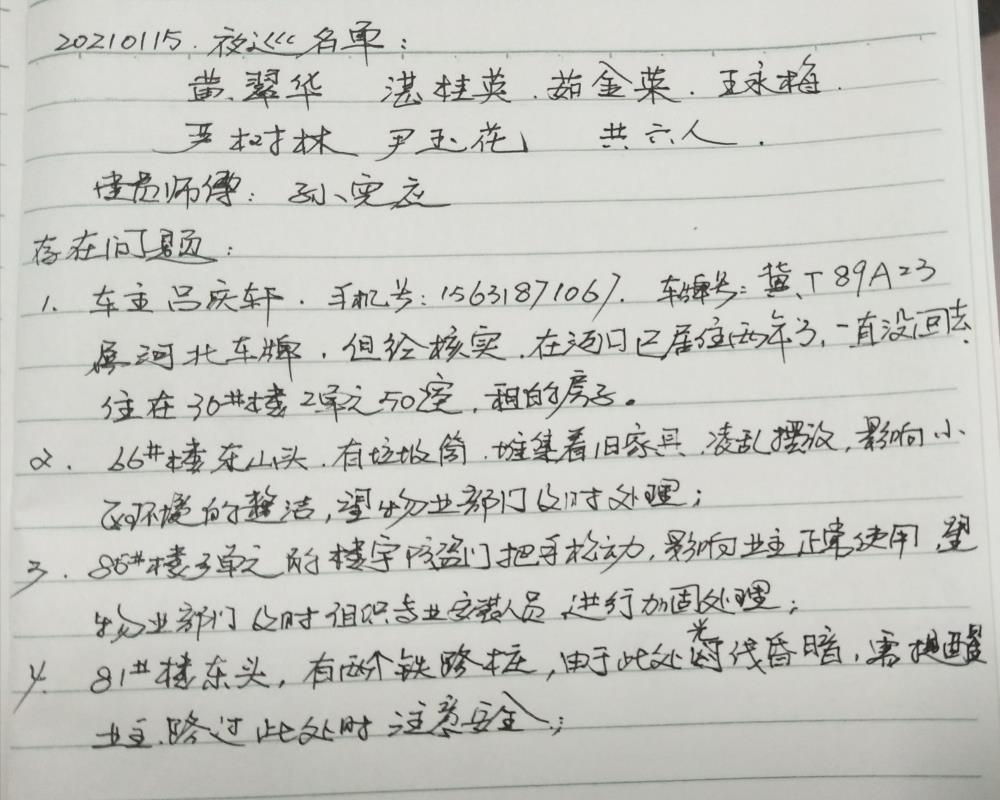 20210115.夜巡名单:
黄翠华 湛桂英.茹金荣.王永梅.
严树林 尹玉花 共六人.
师傅:孙宪应
存在问题:
1. 车主吕庆轩.手机号:15631871067.车牌号:冀T89A23
属河北车牌.但经核实.在河口已居住两年了,一直没回去.
住在30#楼2单元502室,租的房子。
2. 66#楼东山头.有垃圾筒.堆集着旧家具,凌乱摆放,影响小
区环境的整洁,望物业部门及时处理;
3. 86#楼3单元的楼宇防盗门把手松动,影响业主正常使用,望
物业部门及时组织专业安装人员进行加固处理;
4. 81#楼东头,有两个铁路桩,由于此处光线昏暗,需提醒
业主.路过此处时注意安全;